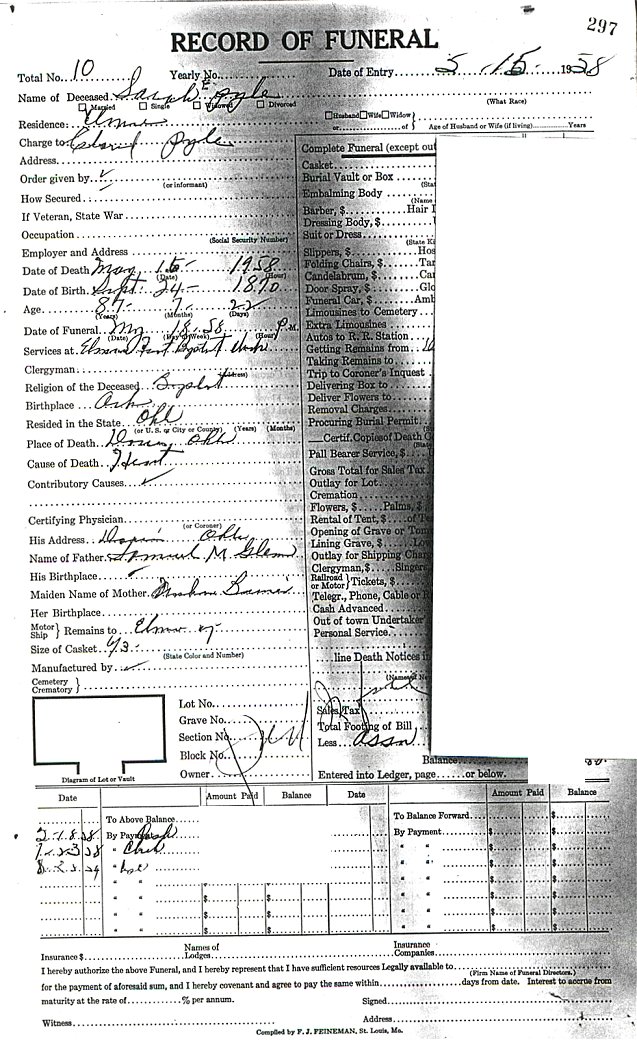 297
RECORD OF FUNERAL
Total No. 10 Yearly No. Date of Entry 5 15 1958
Name of Deceased Sarah E Pyle
Married Single Widowed Divorced (What Race)
Residence: Elmore
Husband Wife Widow
or of Age of Husband or Wife (if living) Years
Charge to Pyle
Address
Order given by
(or informant)
How Secured
If Veteran, State War
Occupation
(Social Security Number)
Employer and Address
Date of Death May 15 1958
(Date) (Hour)
Date of Birth Sept 24 1870
Age 87 7 22
(Years) (Months) (Days)
Date of Funeral 18 58 P. M.
(Date) (Day of Week) (Hour)
Services at Elmore First Baptist Church
Clergyman
(Address)
Religion of the Deceased Baptist
Birthplace Ark
Resided in the State Okl
(or U. S. or City or County) (Years) (Months)
Place of Death Okla
Cause of Death Heart
Contributory Causes
Certifying Physician
(or Coroner)
His Address Okla
Name of Father Samuel M
His Birthplace
Maiden Name of Mother
Her Birthplace
Motor Ship Remains to Elmore
Size of Casket 6/3
(State Color and Number)
Manufactured by
Cemetery
Crematory
Complete Funeral (except out
Casket
Burial Vault or Box
(Sta
Embalming Body
(Name
Barber, $ Hair
Dressing Body, $
Suit or Dress
(State Ki
Slippers, $ Hos
Folding Chairs, $ Tar
Candelabrum, $ Ca
Door Spray, $ Glo
Funeral Car, $ Amb
Limousines to Cemetery
Extra Limousines
Autos to R. R. Station
Getting Remains from
Taking Remains to
Trip to Coroner's Inquest
Delivering Box to
Deliver Flowers to
Removal Charges
Procuring Burial Permit
Certif. Copies of Death C
(State
Pall Bearer Service, $
Gross Total for Sales Tax
Outlay for Lot
Cremation
Flowers, $ Palms, $
Rental of Tent, $ of Te
Opening of Grave or Tom
Lining Grave, $
Outlay for Shipping Char
Clergyman, $ Singers
Railroad or Motor Tickets, $
Telegr., Phone, Cable or R
Cash Advanced
Out of town Undertaker
Personal Service
line Death Notices in
(Names of Ne
Sales Tax
Total Footing of Bill
Less Assn
Balance
Entered into Ledger, page or below.
Lot No.
Grave No.
Section No.
Block No.
Owner
Diagram of Lot or Vault
Date Amount Paid Balance Date Amount Paid Balance
To Above Balance To Balance Forward
By Payment By Payment
Insurance $ Names of Lodges Insurance Companies
I hereby authorize the above Funeral, and I hereby represent that I have sufficient resources Legally available to
(Firm Name of Funeral Directors.)
for the payment of aforesaid sum, and I hereby covenant and agree to pay the same within days from date. Interest to accrue from
maturity at the rate of % per annum. Signed
Witness Address
Compiled by F. J. FEINEMAN, St. Louis, Mo.